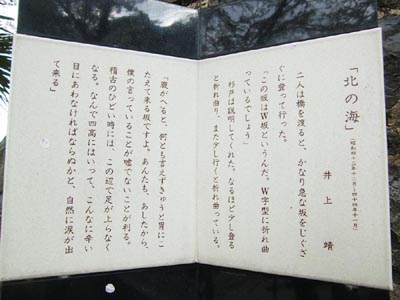 「北の海」(昭和四十三年十二月~四十四年十一月)
井上靖
二人は橋を渡ると、かなり急な坂をじぐざ
ぐに登って行った。
「この坂はW坂というんだ。W字型に折れ曲
っているでしょう」
杉戸は説明してくれた。なるほど少し登る
と折れ曲り、また少し行くと折れ曲っている。
「腹がへると、何とも言えずきゅうと胃にこ
たえて来る坂ですよ。あんたも、あしたから、
僕の言っていることが嘘でないことが判る。
稽古のひどい時には、この辺で足が上らなく
なる。なんで四高にはいって、こんなに辛い
目にあわなければならぬかと、自然に涙が出
て来る」